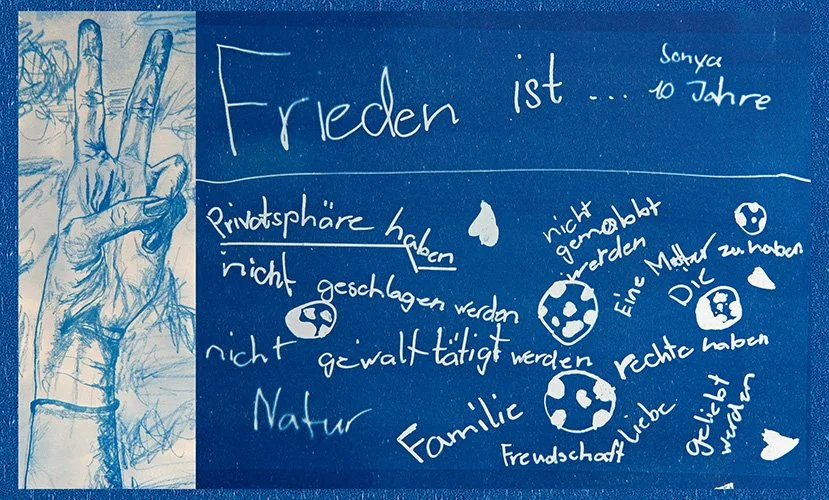 Frieden ist ...
Sonya
10 Jahre
Privatsphäre haben
nicht geschlagen werden
nicht gewalttätigt werden
Natur
nicht
gemobbt
werden
Eine Mutter zu haben
Die
rechte haben
Familie
Freundschaft
Liebe
geliebt
werden